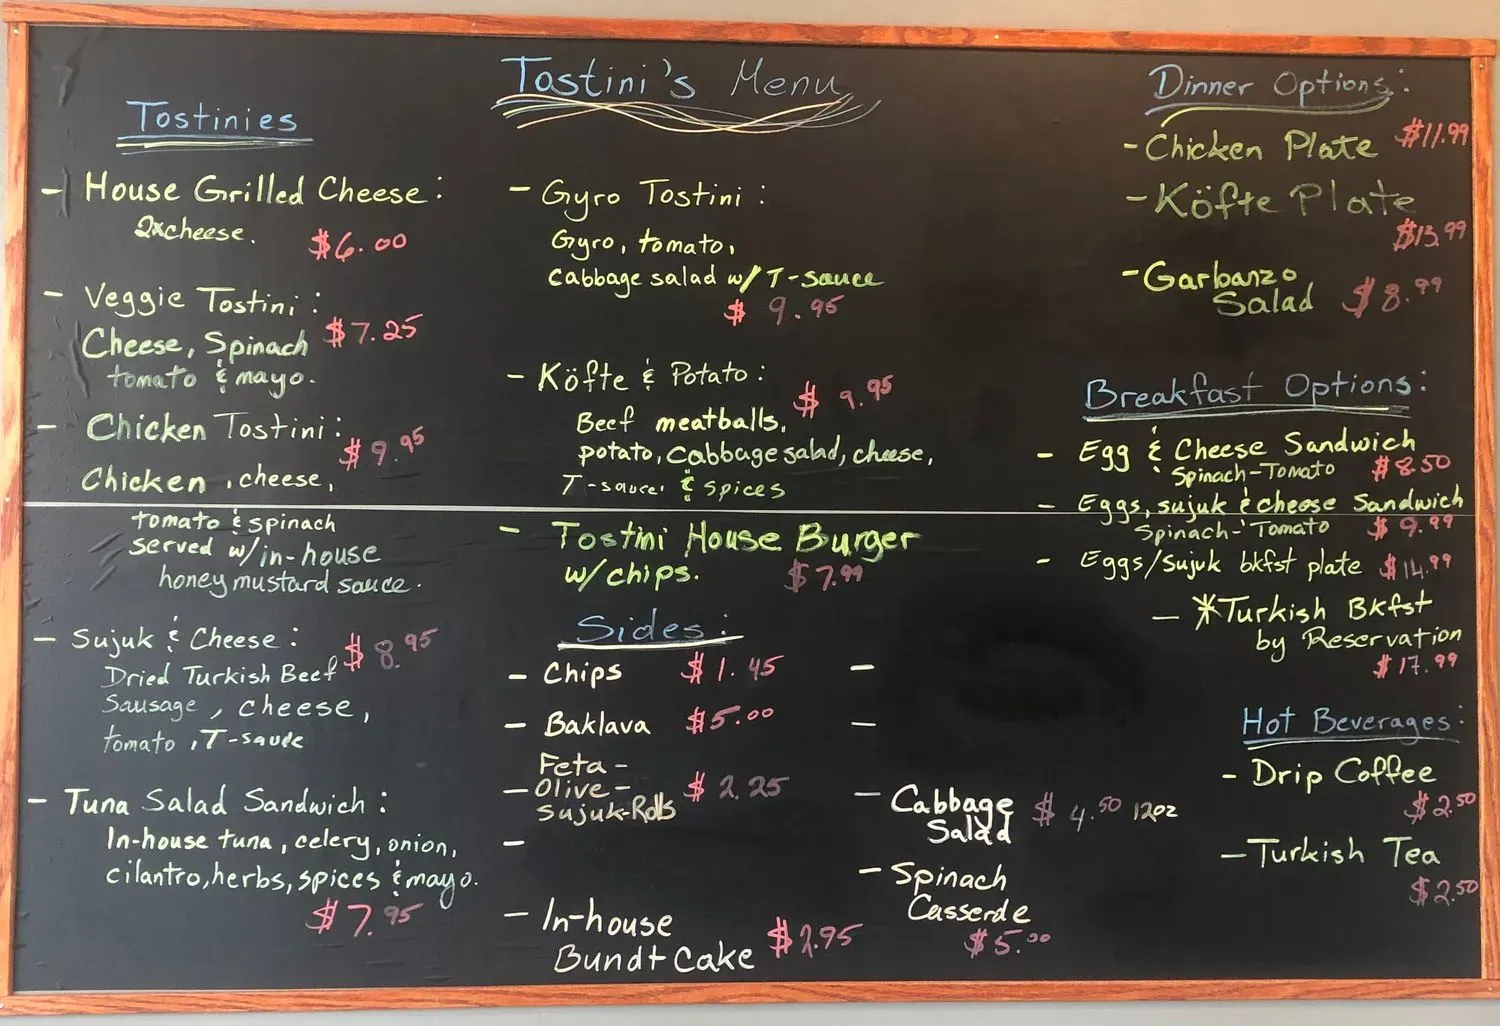 Tostini's Menu
Tostinies
- House Grilled Cheese:
2xcheese. $6.00
- Veggie Tostini:
Cheese, Spinach $7.25
tomato & mayo.
- Chicken Tostini:
$9.95
Chicken, cheese,
tomato & spinach
served w/in-house
honey mustard sauce.
- Sujuk & Cheese:
$8.95
Dried Turkish Beef
Sausage, cheese,
tomato, T-sauce
- Tuna Salad Sandwich:
In-house tuna, celery, onion,
cilantro, herbs, spices & mayo.
$7.95
- Gyro Tostini:
Gyro, tomato,
Cabbage salad w/ T-sauce
$9.95
- Köfte & Potato:
$9.95
Beef meatballs,
potato, Cabbage salad, cheese,
T-sauce, & spices
- Tostini House Burger
w/chips. $7.99
Sides:
- Chips $1.45
- Baklava $5.00
Feta-
- Olive- $2.25
Sujuk-Rolls
-
- In-house
Bundt Cake $2.95
-
-
- Cabbage $4.50 12oz
Salad
- Spinach
Casserole
$5.00
Dinner Options:
- Chicken Plate $11.99
- Köfte Plate
$13.99
- Garbanzo
Salad $8.99
Breakfast Options:
- Egg & Cheese Sandwich
Spinach-Tomato $8.50
- Eggs, sujuk & cheese Sandwich
Spinach-Tomato $9.99
- Eggs/Sujuk bkfst plate $14.99
- *Turkish Bkfst
by Reservation
$17.99
Hot Beverages:
- Drip Coffee
$2.50
- Turkish Tea
$2.50